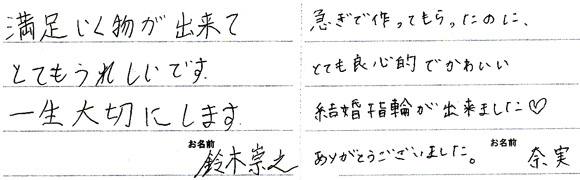 満足いく物が出来て
とてもうれしいです.
一生大切にします.
お名前
鈴木崇之
急ぎで作ってもらったのに、
とても良心的でかわいい
結婚指輪が出来ました♡
ありがとうございました。
お名前
奈実